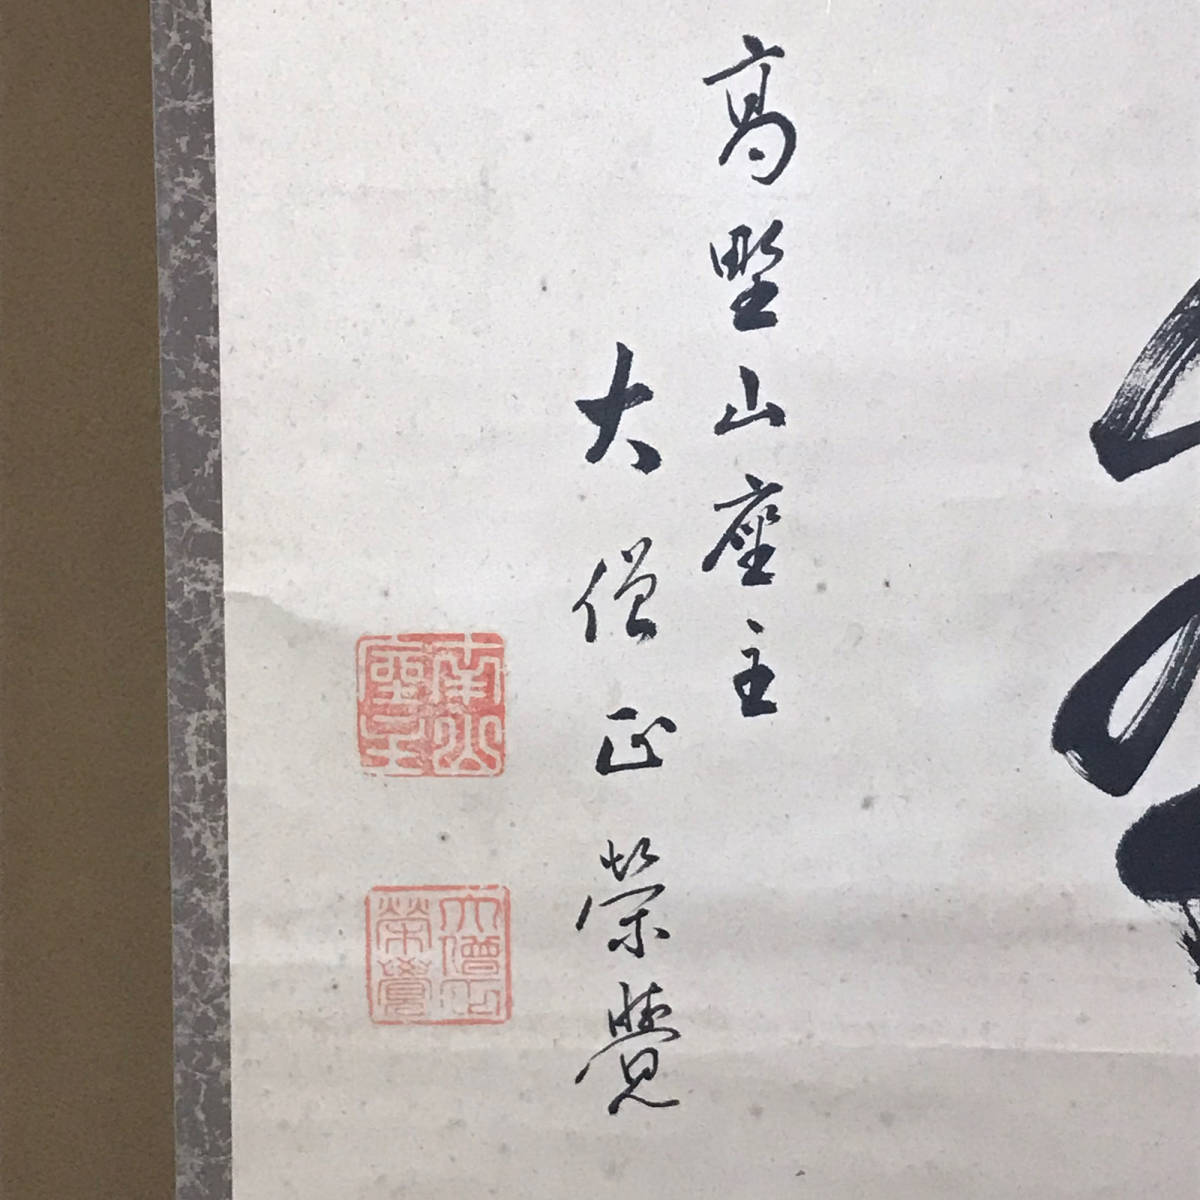 高野山座主
大僧正榮覺
南山座主
大僧正榮覺